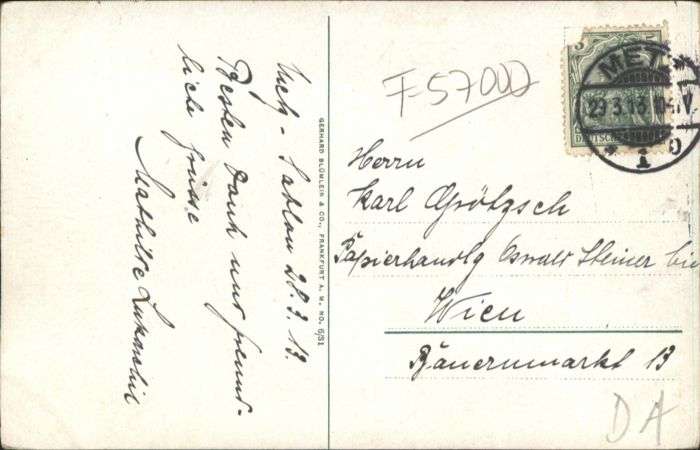 Metz - Sablon 28.3.13.
Besten Dank und freund-
liche Grüsse
Mathilde
GERHARD BLÜMLEIN & CO., FRANKFURT A. M. NO. 6/51
F-57000
5 5
METZ
29.3.13.10-11V
* 1 c
DEUTSCHES
Herrn
Karl Grötzsch
Papierhandlg Oswalt Steiner
Wien
Bauernmarkt 13
DA